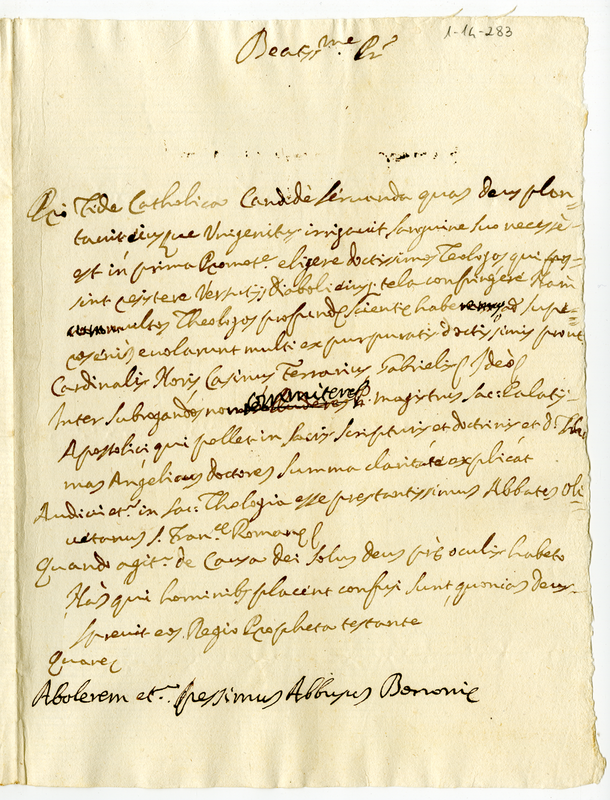 1-14-283
Beatis.me Pr
Pro Fide Catholica Candidè servanda quas deus plan-
tavit eiusque Unigenitus irrigavit sanguine suo necesse
est in prima Promot.e eligere doctissimos Teologos qui pos-
sint resistere Versutijs Diaboli eiusq; tela confringere Nam
multos Theologos profundę scientię ad supe-
evolarunt multi ex purpuratis doctissimis prout
Cardinalis Noris Casinus Ferrarius Gabriellę Ideo
Inter subrogandos non committeres P. magistrus Sac: Palatij
Apostolici qui pollet in sacris scripturis et doctrinis et d. Tho-
mas Angelicus doctores summa claritate explicat
Audivi et.m in Sac: Theologia esse prestantissimus Abbates Oli-
vetanus S. Fran.cę Romanę
Quando agit.r de Causa dei solus deus pre oculis habeto
Nàs qui hominibus placent confusi sunt quonias deus
sprevit eos Regio Propheta testante
Quare
Abolerem et.m pessimus Abbusus Bononię